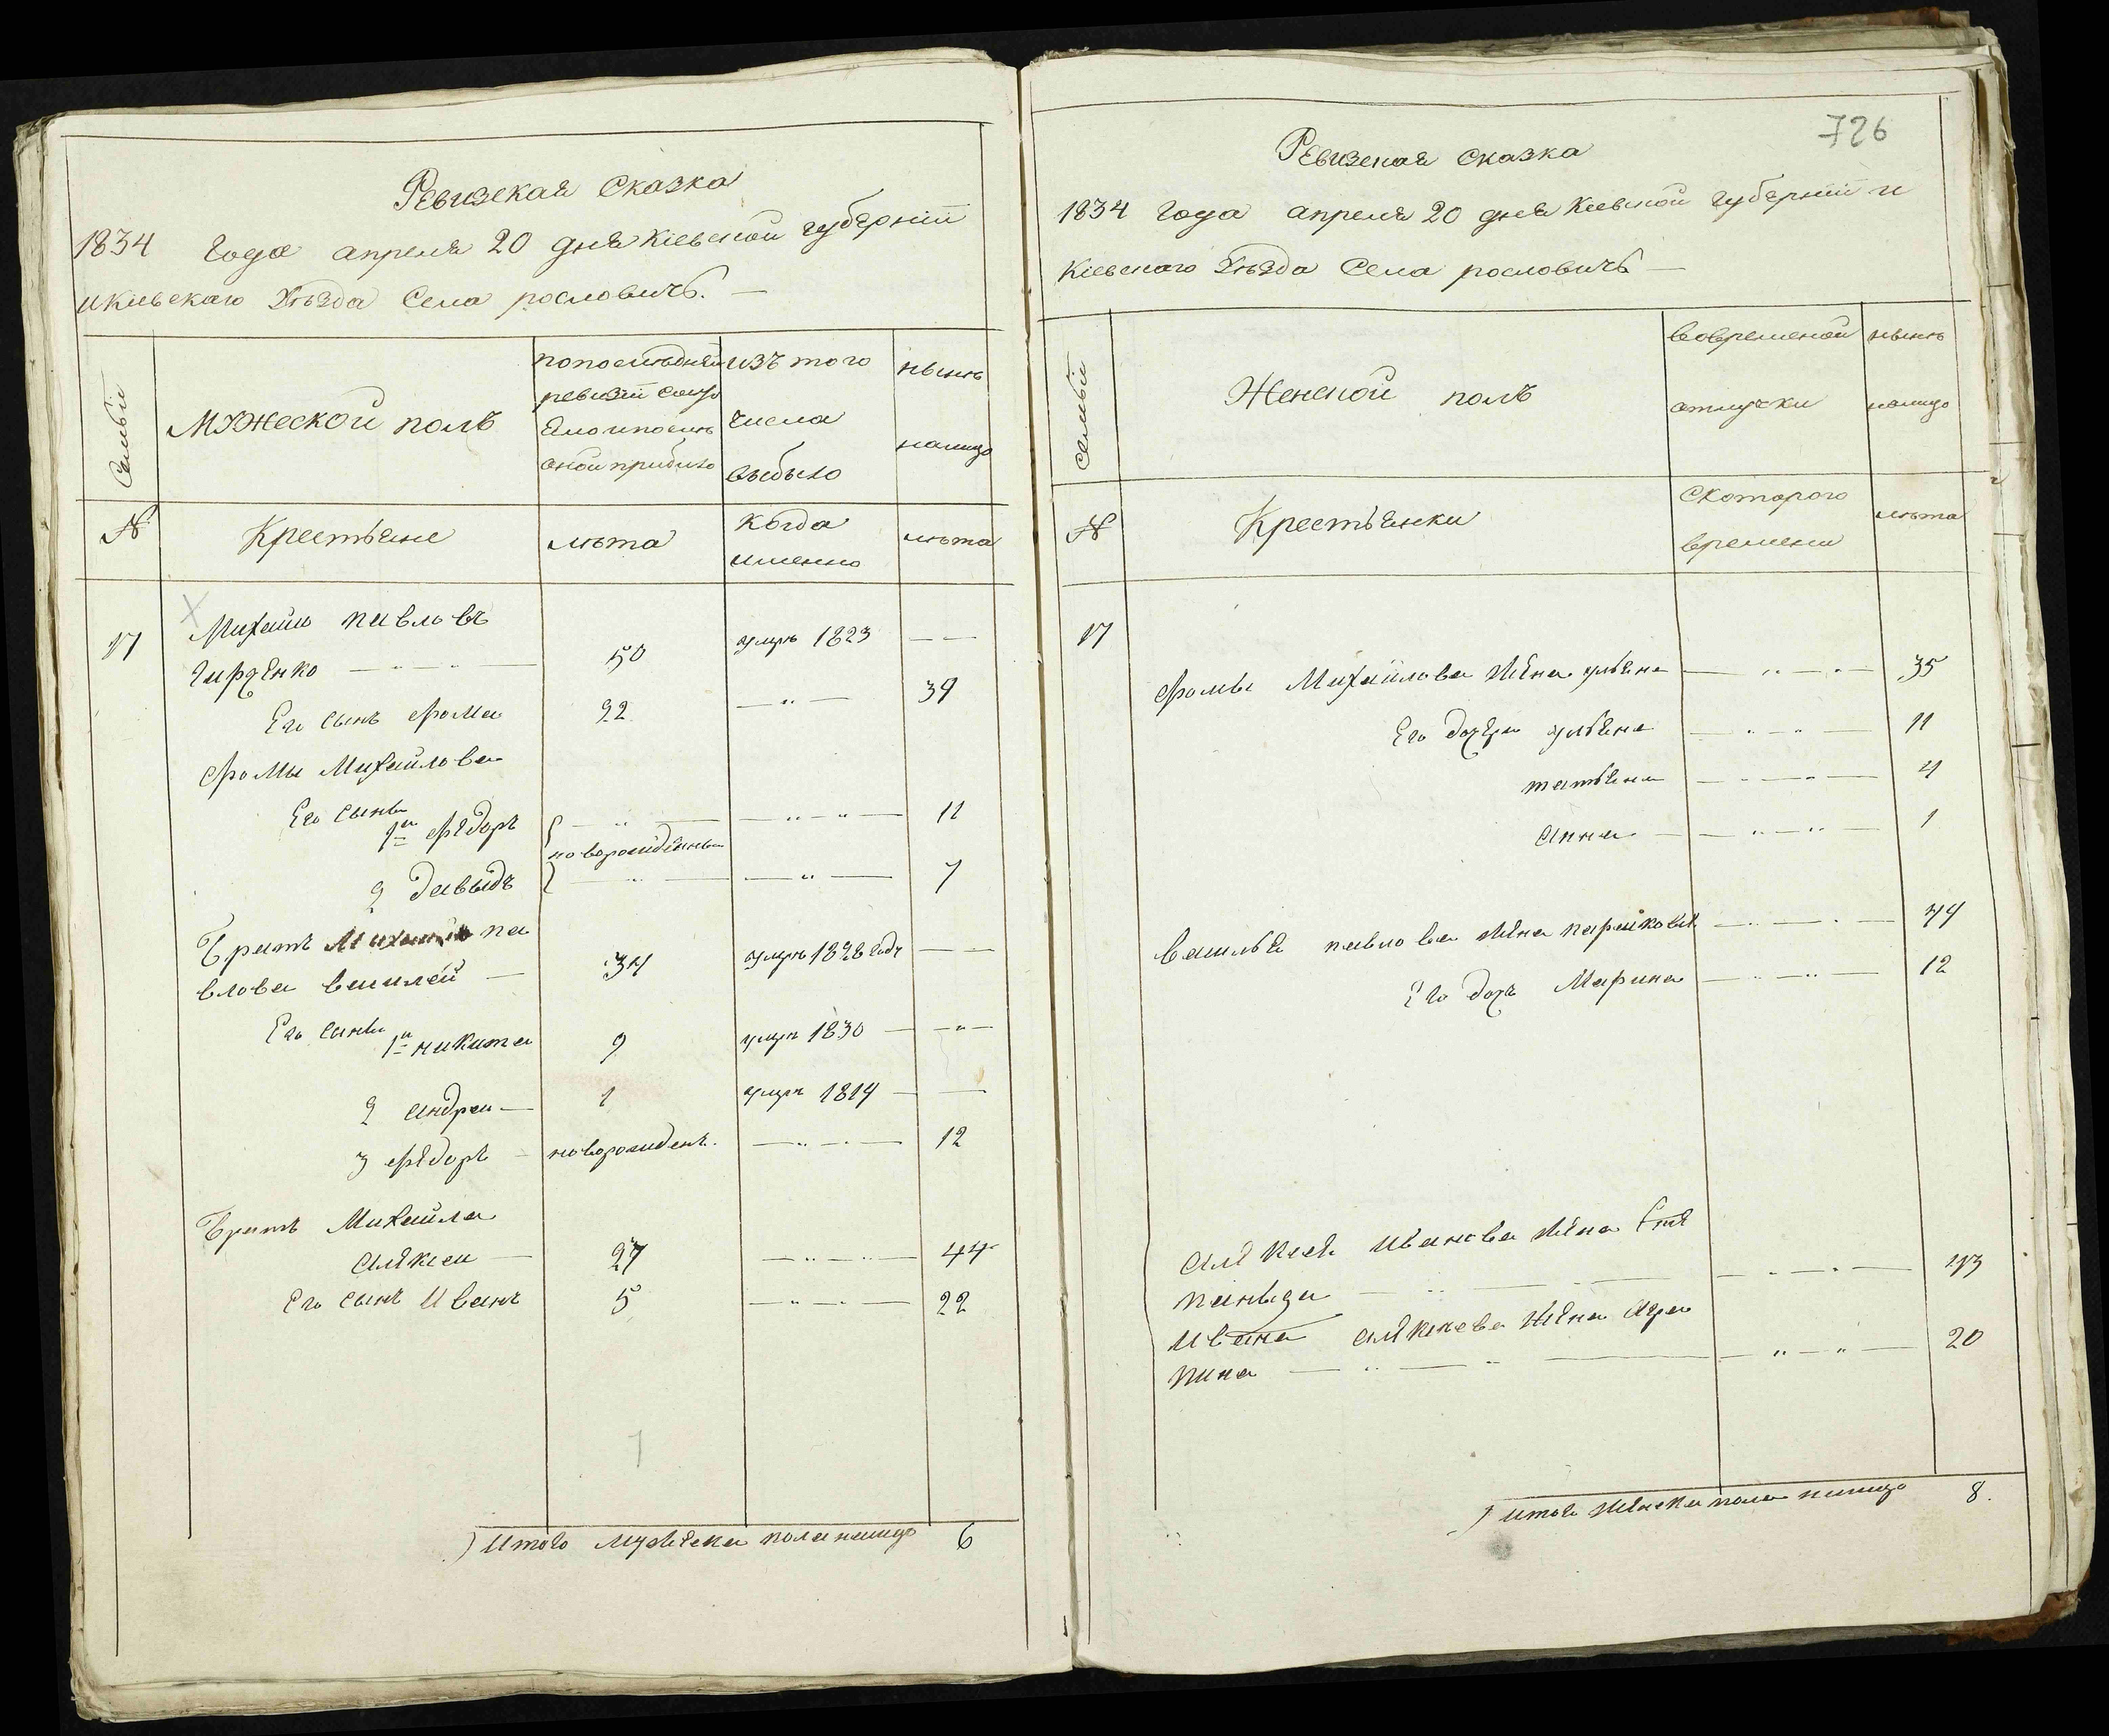 Ревизская Сказка
1834 Года апреля 20 дня Кіевской губерніи
и Кіевскаго Уѣзда Села рословичъ. —
Семьи
Мужеской полъ
попоследней
ревизіи состо
яло и послѣ
оной прибыло
изъ того
числа
выбыло
нынѣ
налицо
№
Крестьяне
лѣта
когда
именно
лѣта
17
Михайло павловъ
50
умръ 1823
— —
Его сынъ фома
— " —
39
фомы Михайлова
Его сыны
1й фѣдоръ
— " —
— " — " —
11
новорожденны
2 давыдъ
— " —
— " —
7
Братъ Михайло па
влова василей —
34
умръ 1828 годъ
— —
Его сыны
1й никита
9
умръ 1830 —
— " —
2 андреи —
1
умръ 1819 —
—
3 фѣдоръ —
новорожденъ.
— " — " —
12
Братъ Михайла
алѣксеи —
27
— " — " —
44
Его сынъ Иванъ
5
— " — " —
22
Итого мужеска пола налицо 6
726
Ревизская Сказка
1834 Года апреля 20 дня Кіевской Губерніи и
Кіевскаго Уѣзда Села рословичъ —
Семьи
Женской полъ
вовременой
отлучки
нынѣ
налицо
№
Крестьянки
Скоторого
времени
лѣта
17
фомы Михайлова жѣна ульяна — " — " —
35
Его дочѣри ульяна — " — " —
11
татьяна — " — " —
4
анна — — " — " —
1
василья павлова жѣна
Его дочь Марина — " — " —
12
алѣксея Иванова жѣна
— " — " —
43
Ивана алѣксева жѣна Агра
пина — " — " — — " — " —
20
Итого жѣнска пола налицо 8.